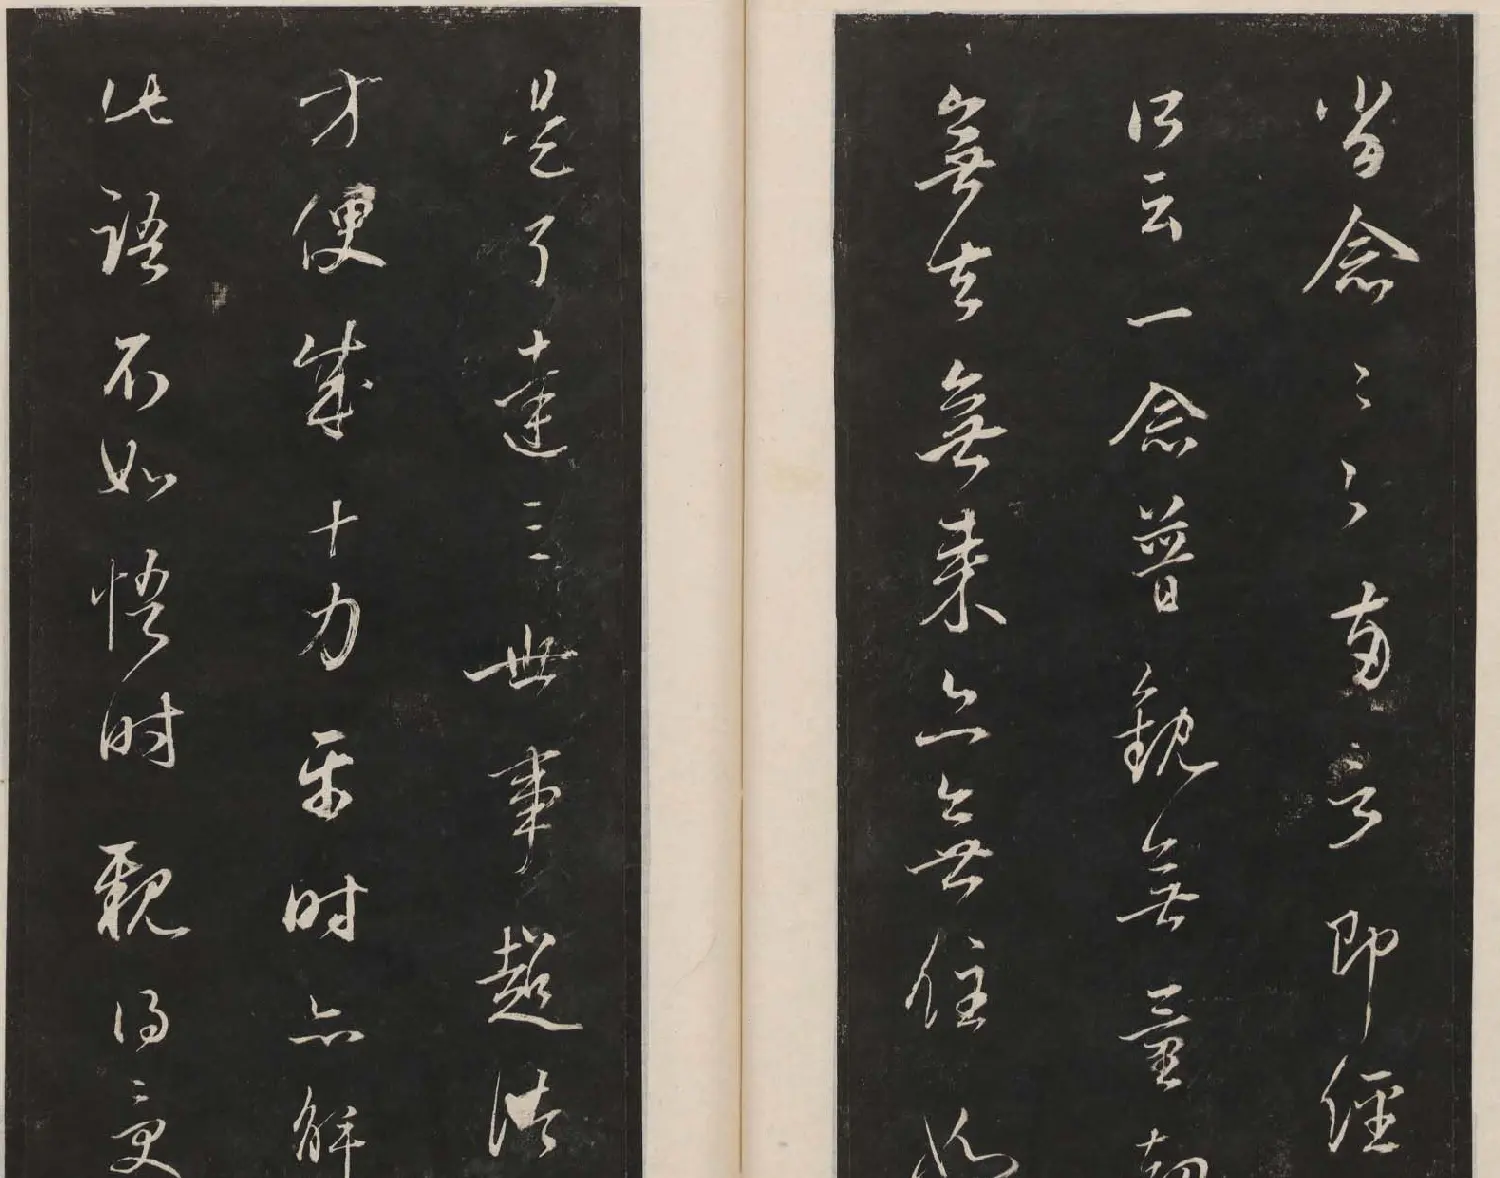 當念〻即經
所云一念普觀無量劫
無去無來亦無住如
是了達三世事超諸
方便成十力平時亦解
此語不如悟時親得更